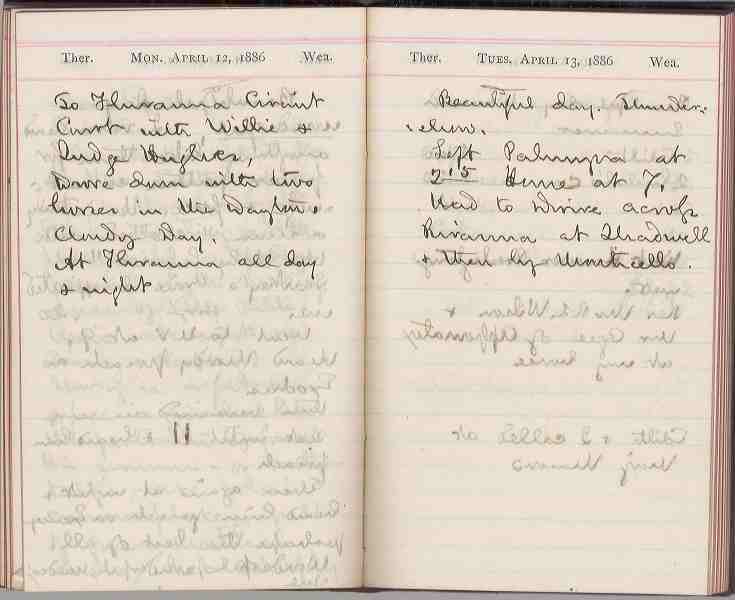 Ther. MON. APRIL 12, 1886 Wea.
To Fluvanna Circuit
Court with Willie &
Judge Hughes,
Drove down with two
horses in the Dayton.
Cloudy Day.
At Fluvanna all day
& night
Ther. TUES. APRIL 13, 1886 Wea.
Beautiful day. Thunder.
Left Palmyra at
2.15 Home at 7.
Had to drive across
Rivanna at Shadwell
& then by Monticello.